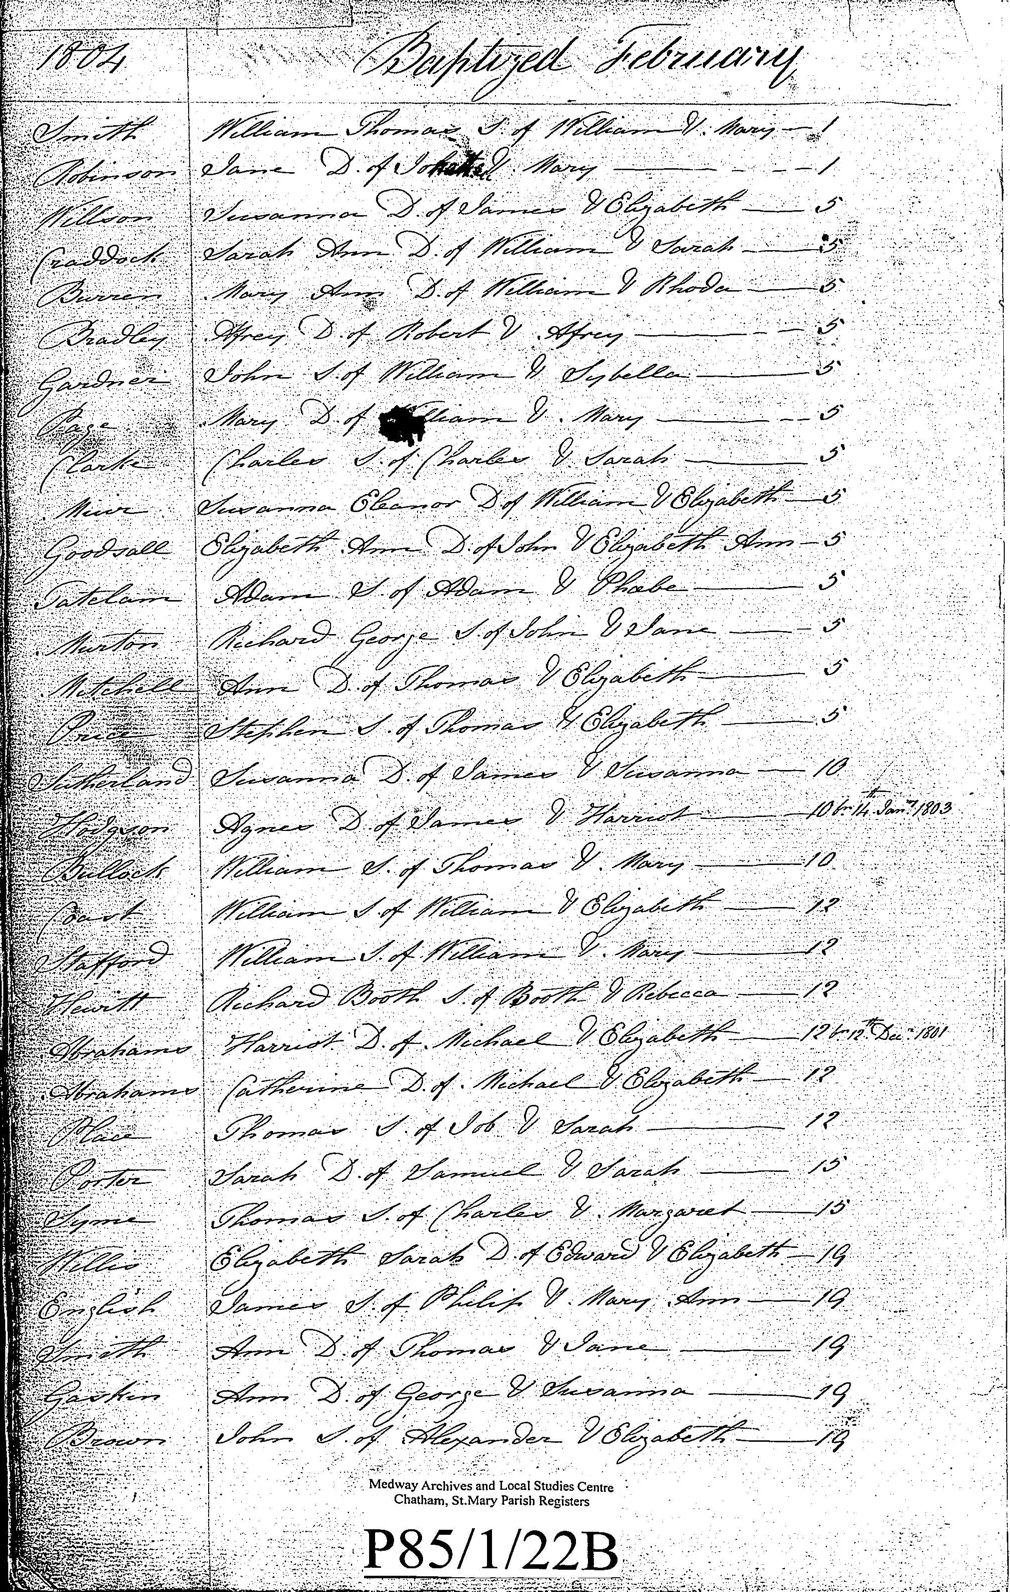 1804 Baptized February
Smith William Thomas S. of William & Mary — 1
Robinson Jane D. of & Mary — 1
Willson Susanna D. of James & Elizabeth — 5
Craddock Sarah Ann D. of William & Sarah — 5
Burren Mary Ann D. of William & Rhoda — 5
Bradley Afrey D. of Robert & Afrey — 5
Gardner John S. of William & Sybella — 5
Page Mary D. of William & Mary — 5
Clarke Charles S. of Charles & Sarah — 5
Susanna Eleanor D of William & Elizabeth — 5
Goodsall Elizabeth Ann D. of John & Elizabeth Ann — 5
Tatelam Adam S. of Adam & Phœbe — 5
Murton Richard George S. of John & Jane — 5
Mitchell Ann D. of Thomas & Elizabeth — 5
Price Stephen S. of Thomas & Elizabeth — 5
Sutherland Susanna D. of James & Susanna — 10
Hodgson Agnes D. of James & Harriot — 10 br. 14th Jany. 1803
Bullock William S. of Thomas & Mary — 10
Coast William S of William & Elizabeth — 12
Stafford William S. of William & Mary — 12
Hewitt Richard Booth S. of Booth & Rebecca — 12
Abrahams Harriot D. of Michael & Elizabeth — 12 br. 12th Decr. 1801
Abrahams Catherine D. of Michael & Elizabeth — 12
Place Thomas S. of Job & Sarah — 12
Porter Sarah D. of Samuel & Sarah — 15
Syme Thomas S. of Charles & Margaret — 15
Willis Elizabeth Sarah D. of Edward & Elizabeth — 19
English James S. of Philip & Mary Ann — 19
Smith Ann D. of Thomas & Jane — 19
Gaskin Ann D. of George & Susanna — 19
Brown John S. of Alexander & Elizabeth — 19
Medway Archives and Local Studies Centre
Chatham, St.Mary Parish Registers
P85/1/22B